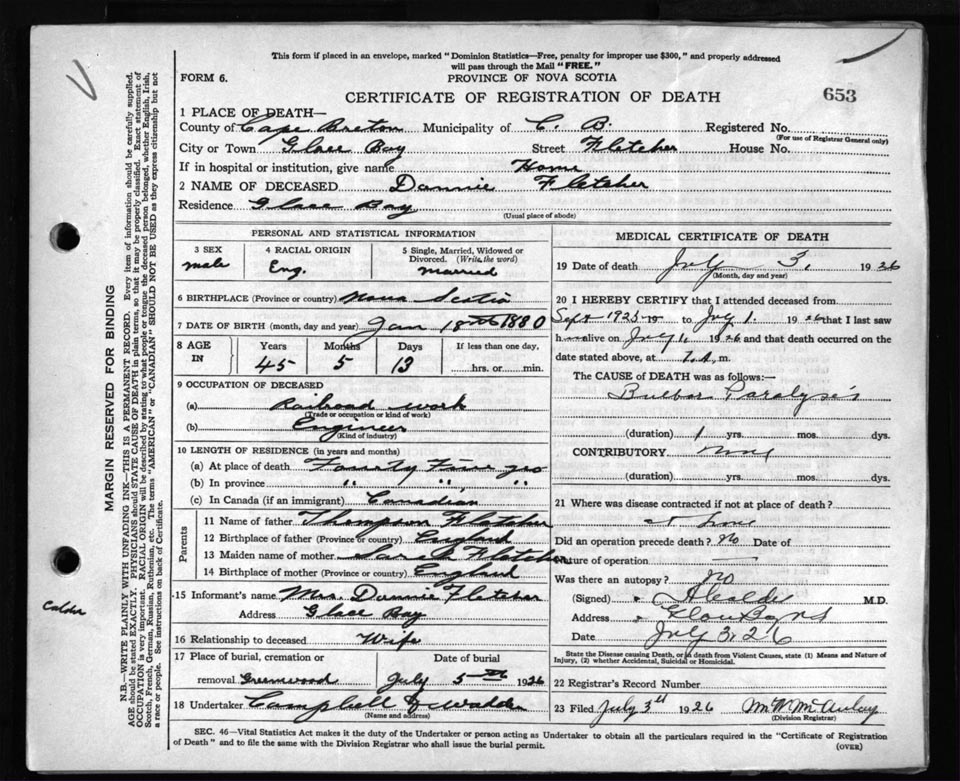 This form if placed in an envelope, marked "Dominion Statistics—Free, penalty for improper use $300," and properly addressed
will pass through the Mail "FREE."
FORM 6.
PROVINCE OF NOVA SCOTIA
CERTIFICATE OF REGISTRATION OF DEATH
653
1 PLACE OF DEATH—
County of Cape Breton Municipality of C. B. Registered No.
(For use of Registrar General only)
City or Town Glace Bay Street Fletcher House No.
If in hospital or institution, give name Home
2 NAME OF DECEASED Dannie Fletcher
Residence Glace Bay
(Usual place of abode)
PERSONAL AND STATISTICAL INFORMATION
3 SEX male
4 RACIAL ORIGIN Eng.
5 Single, Married, Widowed or
Divorced. (Write the word)
married
6 BIRTHPLACE (Province or country) Nova Scotia
7 DATE OF BIRTH (month, day and year) Jan 18th 1880
8 AGE IN
Years Months Days If less than one day,
45 5 13 hrs. or min.
9 OCCUPATION OF DECEASED
(a) Railroad work
(Trade or occupation or kind of work)
(b) Engineer
(Kind of industry)
10 LENGTH OF RESIDENCE (in years and months)
(a) At place of death yrs
(b) In province " " "
(c) In Canada (if an immigrant) Canadian
Parents
11 Name of father Thompson Fletcher
12 Birthplace of father (Province or country) England
13 Maiden name of mother Fletcher
14 Birthplace of mother (Province or country) England
15 Informant's name Mrs. Dannie Fletcher
Address Glace Bay
16 Relationship to deceased Wife
17 Place of burial, cremation or Date of burial
removal Greenwood July 5th 1926
18 Undertaker Campbell & Wadden
(Name and address)
MEDICAL CERTIFICATE OF DEATH
19 Date of death July 3, 1926
(Month, day and year)
20 I HEREBY CERTIFY that I attended deceased from
Sept 1925 19 to July 1. 1926 that I last saw
h alive on July 1, 1926 and that death occurred on the
date stated above, at m.
The CAUSE of DEATH was as follows:—
Bulbar Paralysis
(duration) 1 yrs. mos. dys.
CONTRIBUTORY none
(duration) yrs. mos. dys.
21 Where was disease contracted if not at place of death?
Did an operation precede death? No Date of
Nature of operation —
Was there an autopsy? no
(Signed) M.D.
Address
Date July 3, 26
State the Disease causing Death, or in death from Violent Causes, state (1) Means and Nature of
Injury, (2) whether Accidental, Suicidal or Homicidal.
22 Registrar's Record Number
23 Filed July 3rd 1926
(Division Registrar)
SEC. 46—Vital Statistics Act makes it the duty of the Undertaker or person acting as Undertaker to obtain all the particulars required in the "Certificate of Registration
of Death" and to file the same with the Division Registrar who shall issue the burial permit.
(OVER)
MARGIN RESERVED FOR BINDING
N.B.—WRITE PLAINLY WITH UNFADING INK—THIS IS A PERMANENT RECORD. Every item of information should be carefully supplied.
AGE should be stated EXACTLY. PHYSICIANS should STATE CAUSE OF DEATH in plain terms, so that it may be properly classified. Exact statement of
OCCUPATION is very important. RACIAL ORIGIN will be described by stating to what people or tongue the deceased person belonged, whether English, Irish,
Scotch, French, German, Russian, Ruthenian, etc. The terms "AMERICAN" or "CANADIAN" SHOULD NOT BE USED as they express citizenship but not
a race or people. See instructions on back of Certificate.